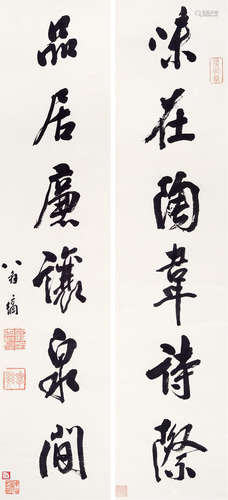 味在陶韋诗際
品居廉讓泉間
八翁